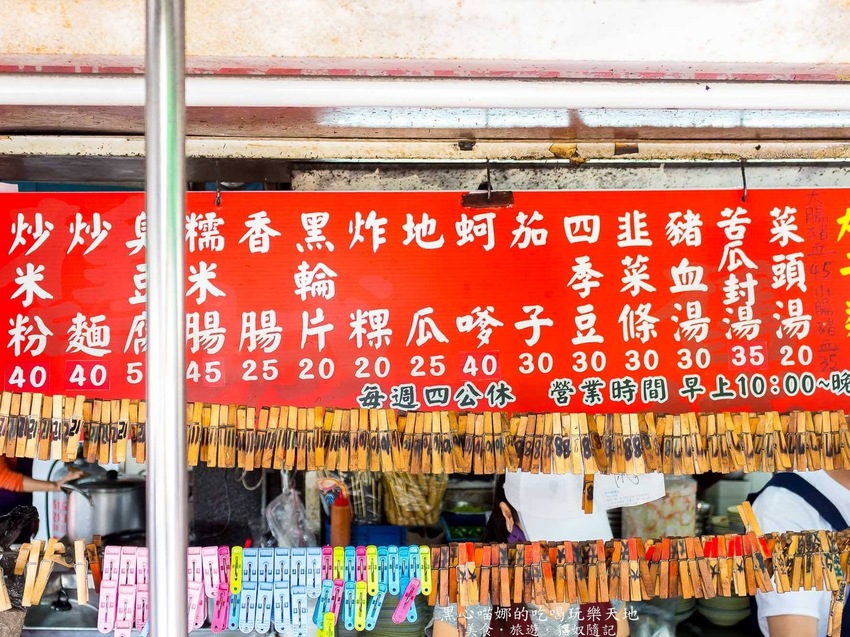 炒米粉 40
炒麵 40
臭豆腐 5
糯米腸 45
香腸 25
黑輪片 20
炸粿 20
地瓜 25
蚵嗲 40
茄子 30
四季豆 30
韭菜條 30
豬血湯 30
苦瓜封湯 35
菜頭湯 20
大腸豬血 45
小腸豬血 35
每週四公休 營業時間 早上10:00~晚
黑心喵娜的吃喝玩樂天地
美食·旅遊·貓奴隨記